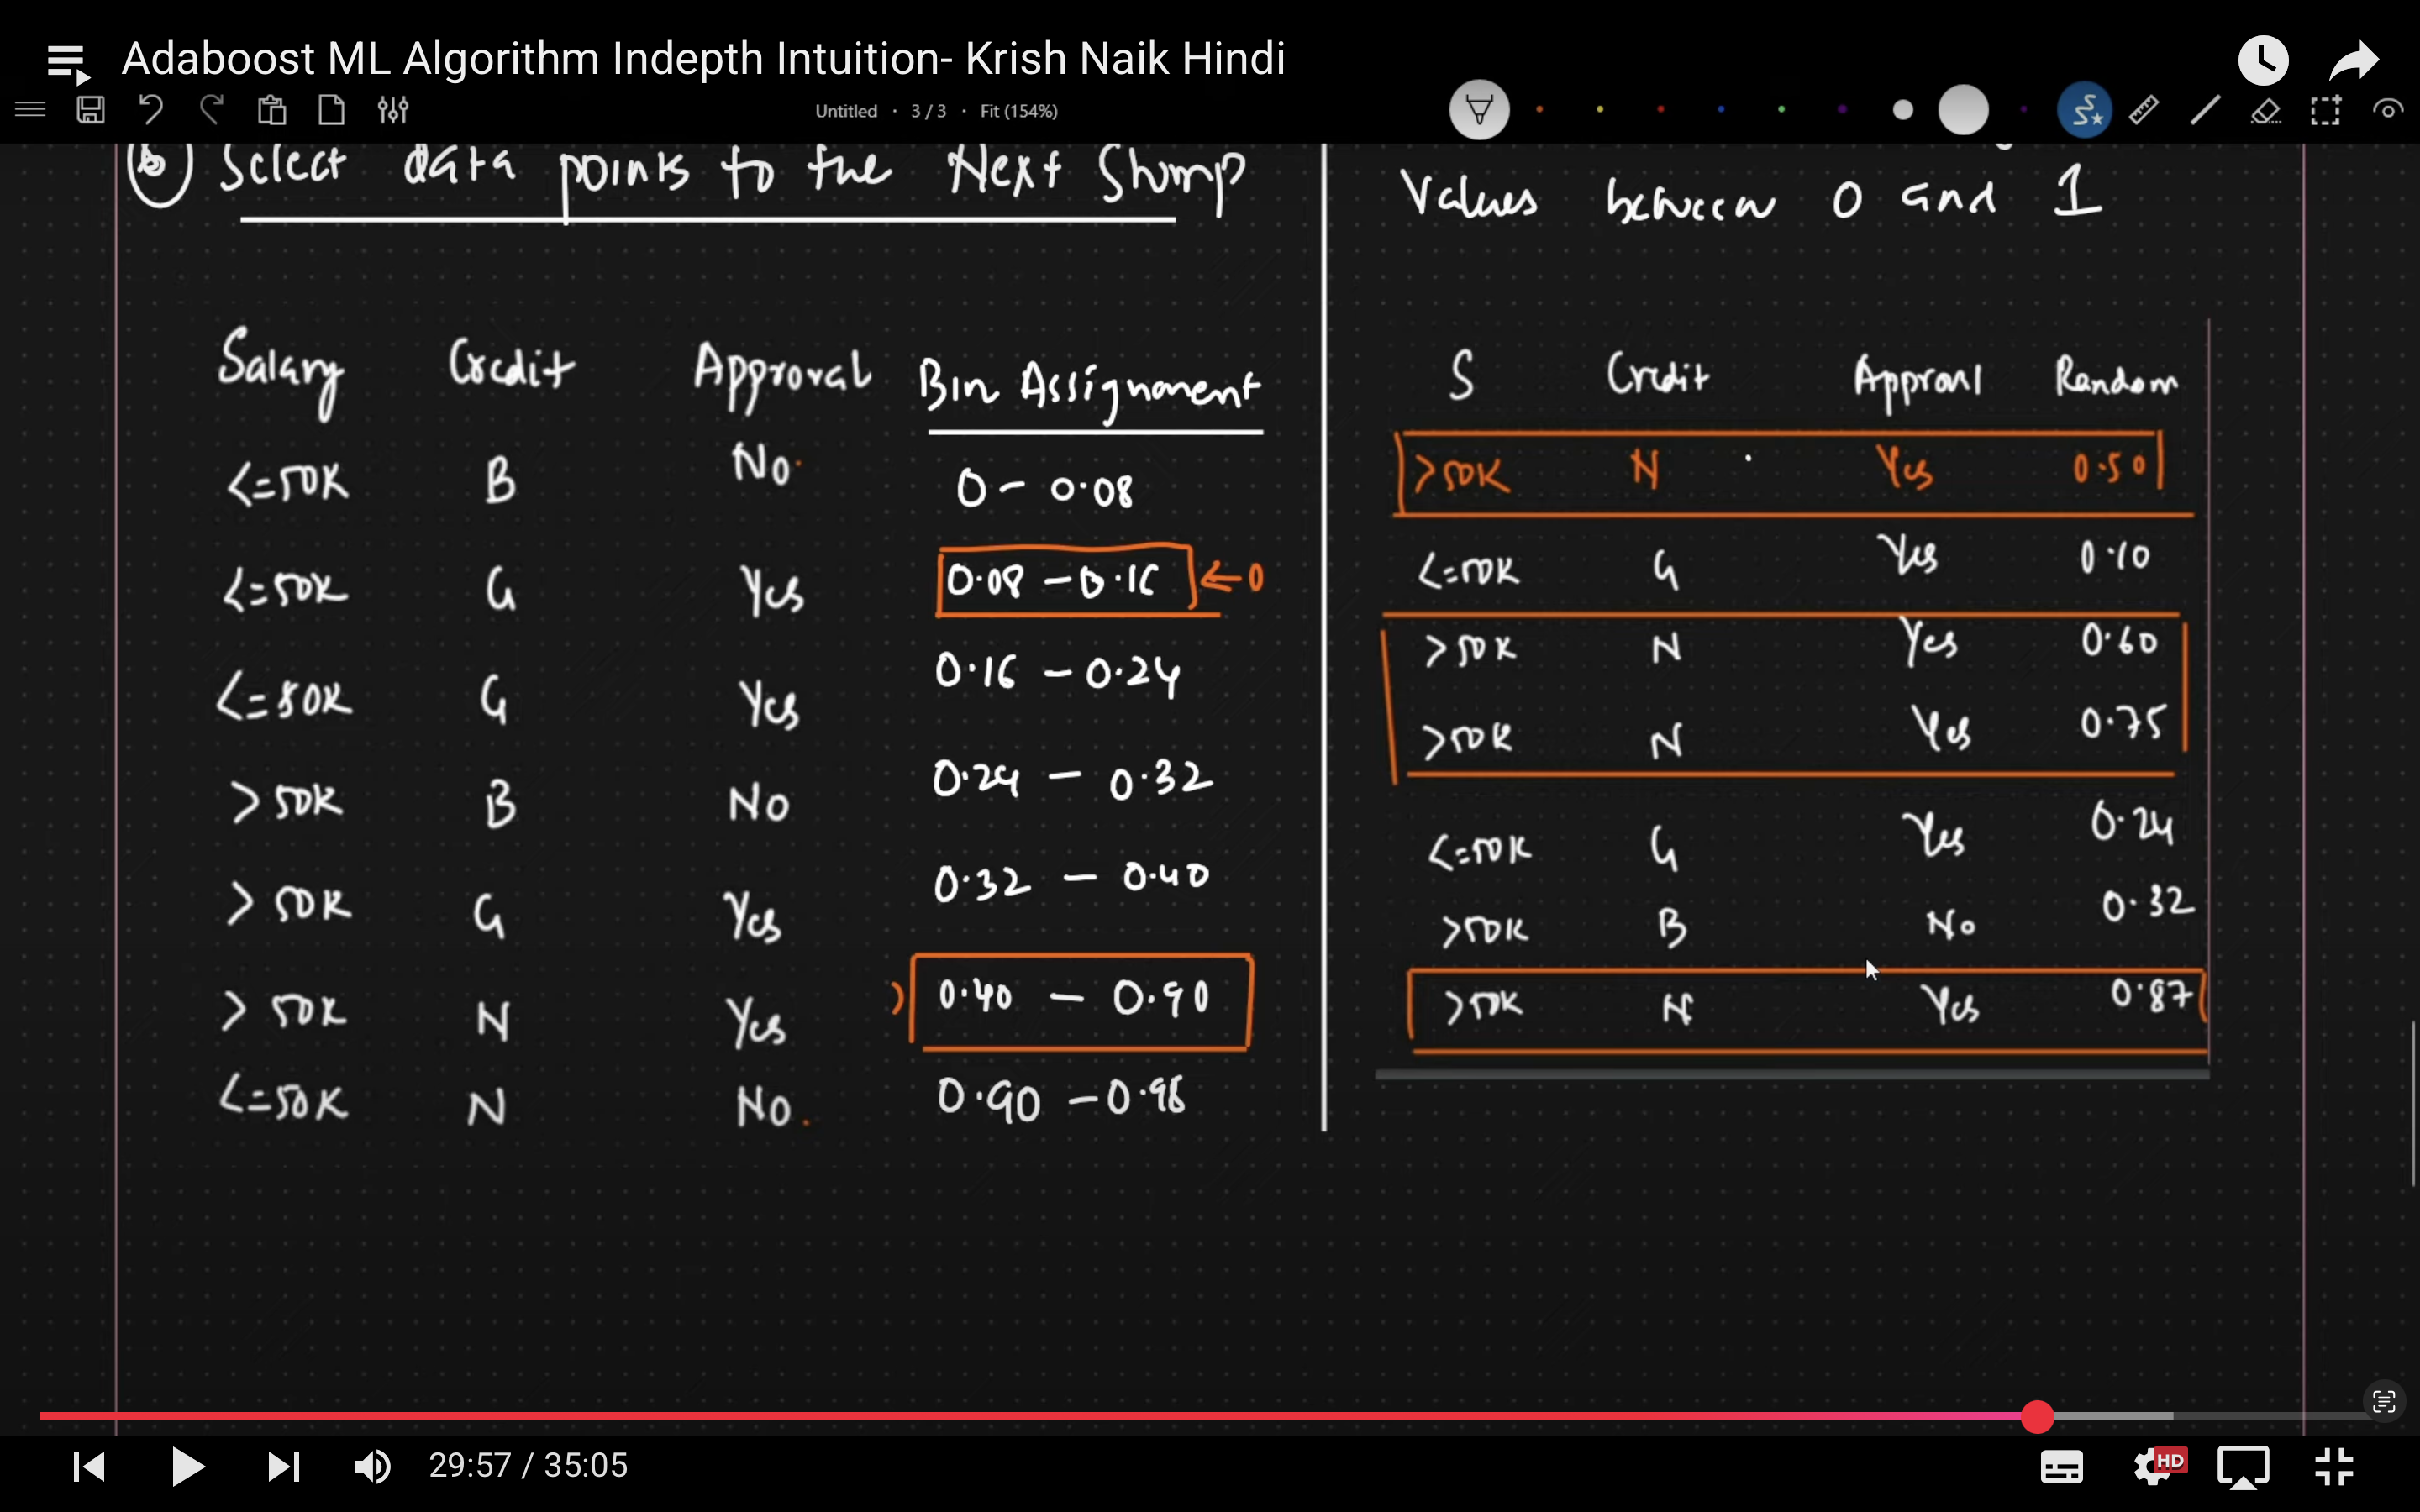 Adaboost ML Algorithm Indepth Intuition- Krish Naik Hindi
Untitled · 3 / 3 · Fit (154%)
Select data points to the Next Stump
Values between 0 and 1
Salary Credit Approval Bin Assignment
<=50K B No 0 - 0.08
<=50K G Yes 0.08 - 0.16 ← 0
<=50K G Yes 0.16 - 0.24
>50K B No 0.24 - 0.32
>50K G Yes 0.32 - 0.40
>50K N Yes 0.40 - 0.90
<=50K N No 0.90 - 0.98
S Credit Approval Random
>50K N Yes 0.50
<=50K G Yes 0.10
>50K N Yes 0.60
>50K N Yes 0.75
<=50K G Yes 0.24
>50K B No 0.32
>50K N Yes 0.87
29:57 / 35:05
HD